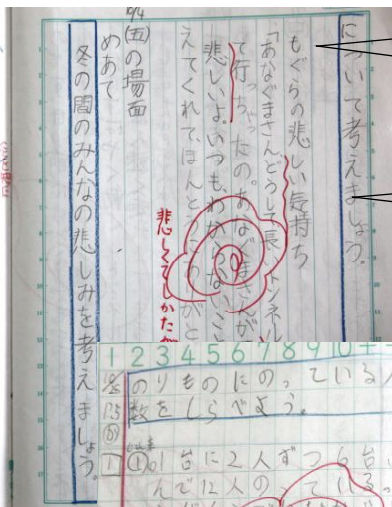 について考えましょう。
もぐらの悲しい気持ち
「あなぐまさんどうして長いトンネル
て行っちゃったの。あなぐまさんが
悲しいよ。いつも、わからないこ
えてくれて、ほんとうにありがと
悲しくてしかたが
10/4
(五)の場面
めあて
冬の間のみんなの悲しみを考えましょう。
1 2 3 4 5 6 7 8 9 10
のりものにのっている人
数をしらべよう。
① 1台に2人ずつ6台
んで12人の